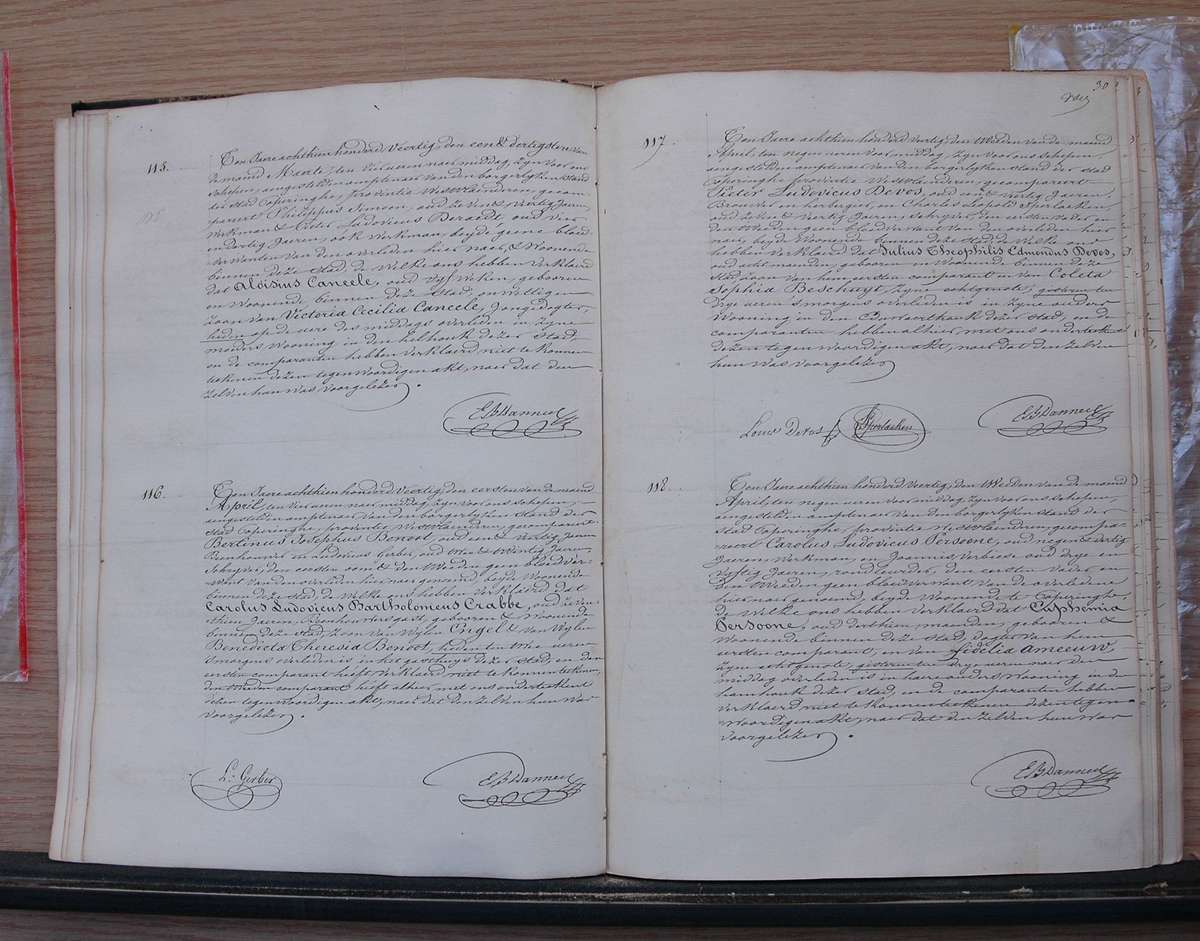 115.
Ten Jaere achthien honderd veertig, den een & dertigsten van
de maend Maerte, ten vier uren naer middag, zyn voor ons
schepen, aengestelden amptenaer van den borgerlyken stand
der stad Poperinghe, provintie Westvlaenderen, gecom-
pareert Philippus Simoen, oud zevent veertig Jaeren,
Werkman & Pieter Ludovicus Deraedt, oud vier
en dertig Jaeren, ook Werkman, beyde geene bloed-
verwanten van den overleden hier naer, & Woonende
binnen deze stad, de Welke ons hebben verklaerd
dat Aloisius Caneele, oud vyf weken, gebooren
en Woonende binnen deze stad, onwettigen
zoon van Victoria Cecilia Caneele, Jongedogter,
heden op de ure des middags overleden in zyne
moeders Wooning in den helhoek dezer stad,
en de comparanten hebben verklaerd niet te konnen
teekenen dezen tegenwoordigen akt, naer dat den
zelven hun was voorgelezen.
E B Danneel
116.
Ten Jaere achthien honderd veertig, den eersten van de maend
April, ten vier uren naer middag, zyn voor ons schepen,
aengestelden amptenaer van den borgerlyken stand der
stad Poperinghe, provintie Westvlaenderen, gecompareert
Bertinus Josephus Benoot, oud een & veertig Jaeren
en Ludovicus Gerber, oud drie & veertig Jaeren,
Schryver, den eersten oom & den tweeden geen bloedver-
want van den overleden hier naer genoemd, beyde Woonende
binnen deze stad, de Welke ons hebben verklaerd dat
Carolus Ludovicus Bartholomeus Crabbe, oud zeven-
thien Jaeren, gebooren & Woonende
binnen deze stad, zoon van Wylen Engel & van Wylen
Benedicta Theresia Benoot, heden ten twee uren
smorgens overleden is in het gasthuys dezer stad, en den
eersten comparant heeft verklaerd niet te konnen teekenen,
den tweeden comparant heeft alhier met ons onderteekend
dezen tegenwoordigen akt, naer dat den zelven hun was
voorgelezen.
L: Gerber
E B Danneel
30
117.
Ten Jaere achthien honderd veertig, den tweeden van de maend
April, ten negen uren voor middag, zyn voor ons schepen,
aengestelden amptenaer van den borgerlyken stand der stad
Poperinghe provintie Westvlaenderen, gecompareert
Pieter Ludovicus Devos, oud veertig Jaeren,
Brouwer en herbergier, en Charles Leopold Sporlacken
oud zeven & veertig Jaeren, Schryver, den eersten vader en
den tweeden geen bloedverwant van den overleden hier
naer, beyde Woonende binnen deze stad, de Welke ons
hebben verklaerd dat Julius Theophilis Edmondus Devos,
oud acht maenden, gebooren en Woonende binnen deze
stad, zoon van hun eersten comparant en van Coleta
Sophia Beschuyt, zyne echtgenote, gisteren ten
drye uren smorgens overleden is in zyne ouders
Wooning in den dezer stad, en de
comparanten hebben alhier met ons onderteekend
dezen tegenwoordigen akt, naer dat den zelven
hun was voorgelezen.
Louis Devos
Sporlacken
E B Danneel
118
Ten Jaere achthien honderd veertig, den tweeden van de maend
April, ten negen uren voor middag, zyn voor ons schepen
aengestelden amptenaer van den borgerlyken stand der
stad Poperinghe, provintie Westvlaenderen, gecompa-
reert Carolus Ludovicus Persoone, oud negen & dertig
Jaeren, Werkman, en Joannis Verbiese oud drye en
vyftig Jaeren, den eersten vader en
den tweeden geen bloedverwant van de overledene
hier naer genoemd, beyde Woonende te Poperinghe,
de Welke ons hebben verklaerd dat Euphemia
Persoone, oud derthien maenden, gebooren &
Woonende binnen deze stad, dogter van hun
eersten comparant, en van Fidelia Ameeuw,
zyne echtgenote, gisteren ten drye uren naer den
middag overleden is in haere ouders Wooning in den
hamhoek dezer stad, en de comparanten hebben
verklaerd niet te konnen teekenen dezen tegen-
woordigen akt, naer dat den zelven hun was
voorgelezen.
E B Danneel